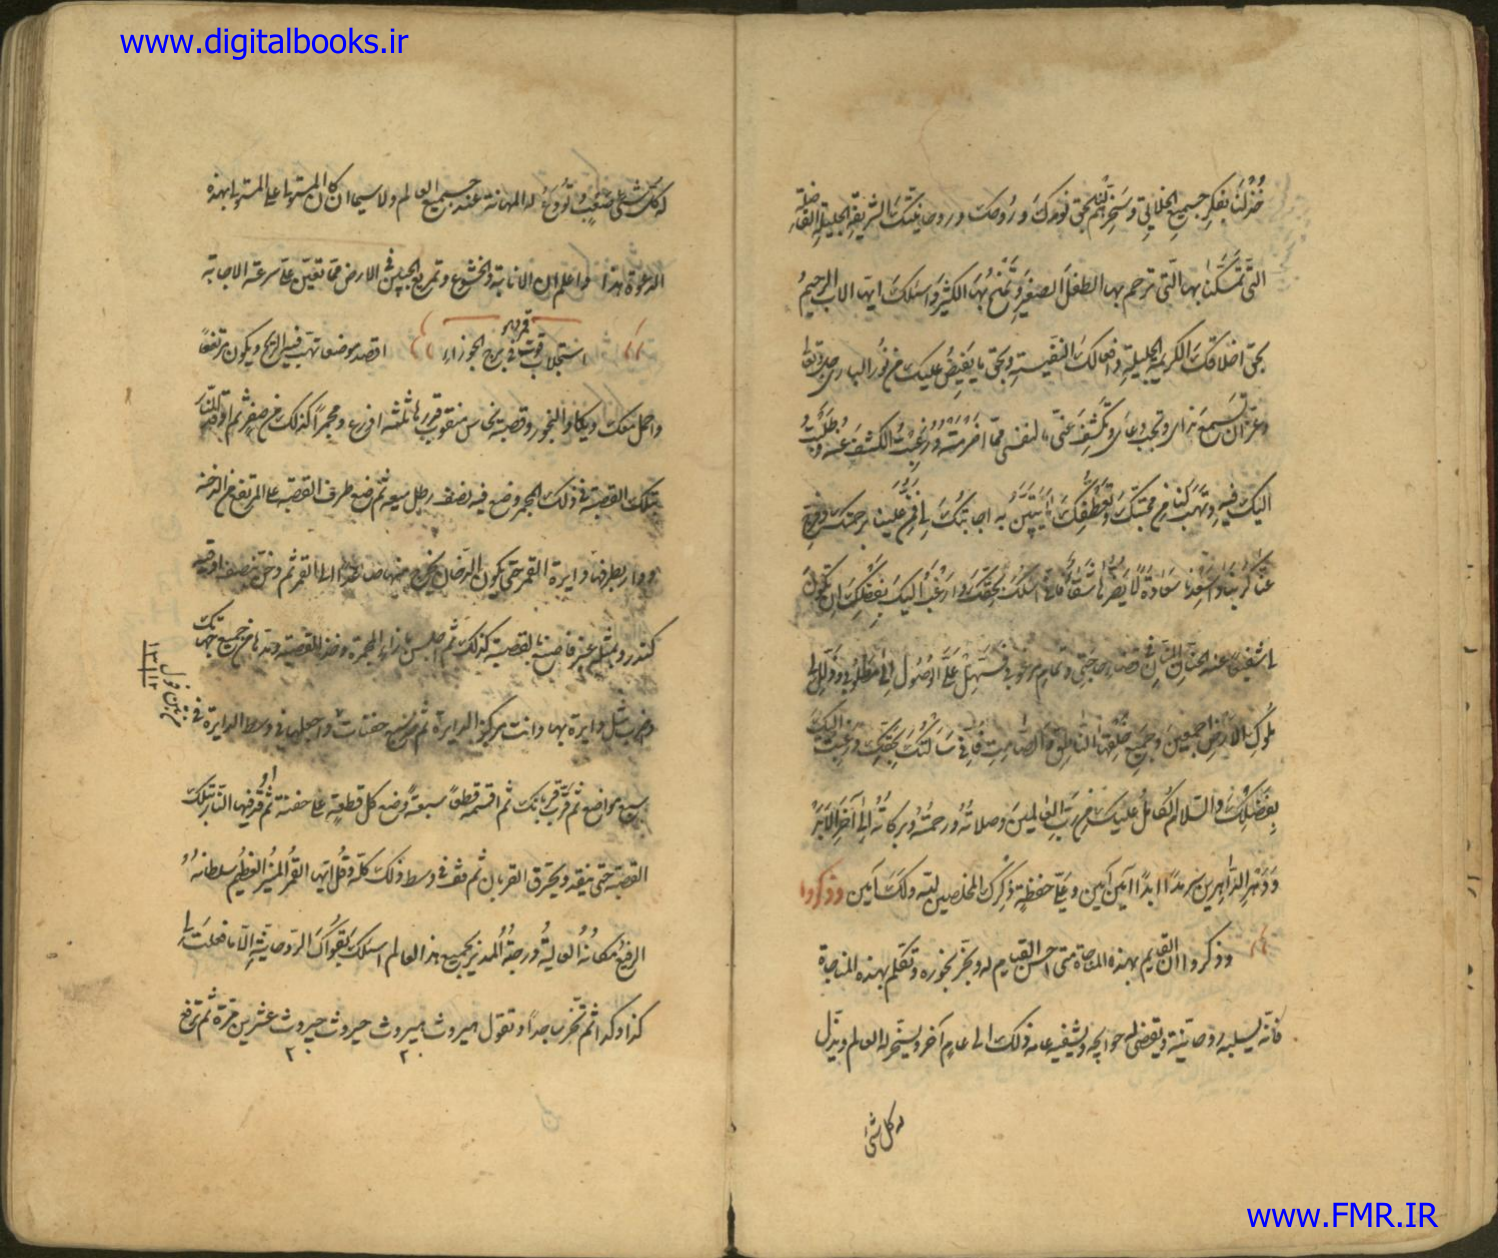 www.digitalbooks.ir
خذ لنا بفكر جميع الخلايق وسخرهم لنا بحق نورك وروحك وروحانيتك الشريفة الجليلة الفاضلة
التي تمسكنا بها التي ترحم بها الطفل الصغير وتمنح بها الكثير واسئلك ايها الاب الرحيم
بحق اخلاقك الكريمة الجليلة وفعالك النفيسة وبحق ما يفيض عليك من نور الباري
ان تسمع ندائي وتجب دعائي وتكشف عني ما لنفسي مما ورغبت الكشف عنه وطلبت
اليك فيه وتهب لنا من محبتك وتعطفك ما يتبين به اجابتك لي علينا برحمتك وفرج
عنا كربنا واسعدنا سعادة لا يضرنا شقا فاني اسئلك بحقك وارغب اليك بفضلك ان تكون
لي شفيعا عند الحنان المنان في قضاء حاجتي وتمام مرغوبي وتسهل علي الوصول الى مطلوبي وذلل لي
ملوك الارض اجمعين وجميع خلقها الناطق والصامت فاني سالتك بحقك ورغبت اليك
بفضلك والسلام الكامل عليك من رب العالمين وصلاته ورحمته وبركاته الى آخر الابد
ودهر الداهرين سرمدا ابدا آمين آمين وعلى حفظة ذكرك المخلصين لبيته ولك آمين وذكروا
وذكروا ان القديم بهذه المناجاة متى احسن القيام له وبخر بخوره وتكلم بهذه المناجاة
فانه يسلبه روحانيته ويقضي له حوايجه ويشفيه عامه ذلك الى عام آخر ويسخر له العالم وينزل
له كل شئ
له كل شئ صعب وتوقع له المهابة عند جميع العالم ولا سيما ان كان المستولي على المستولي بهذه
الدعوة هذا واعلم ان الانابة والخشوع وتمريغ الجبين في الارض مما تعين على سرعة الاجابة
استجلاب قوت قمر وهو في برج الجوزاء اقصد موضعا تهب فيه الريح ويكون مرتفعا
واحمل معك ديكا والبخور وقصبة نحاس مثقوب قدرها ثلثة اذرع ومجمرا كذلك من صفر ثم اوقد النار
بتلك القصبة في ذلك المجمر وضع فيه نصف رطل ميعة ثم ضع طرف القصبة على المرتفع من الدخنة
ودار بطرفها دايرة القمر حتى يكون الدخان يخرج منها صاعدا الى القمر ثم دخن بنصف اوقية
كندر وبمثله عنبر فاضف بالقصبة كذلك ثم اجلس بازاء المجمرة وخذ القصبة ودرها من جميع جهاتك
واضرب مثل دايرة بها وانت مركز الدايرة ثم خذ سبع حفنات واجعلها في وسط الدايرة في
سبع مواضع ثم قرب قربانك ثم اقسمه قطعا سبعة وضع كل قطعة على حفنة ثم اوقد فيها النار بتلك
القصبة حتى ينقد ويحترق القربان ثم قف في وسط ذلك كله وقل ايها القمر المنير العظيم سلطانه
الرفيع مكانه العالية درجته المدبر بجميع هذا العالم اسئلك بقواك الروحانية الا ما فعلت لي
كذا وكذا ثم تخر ساجدا وتقول هيروث هيروث حيروث حيروث عشرين مرة ثم ترفع
www.FMR.IR